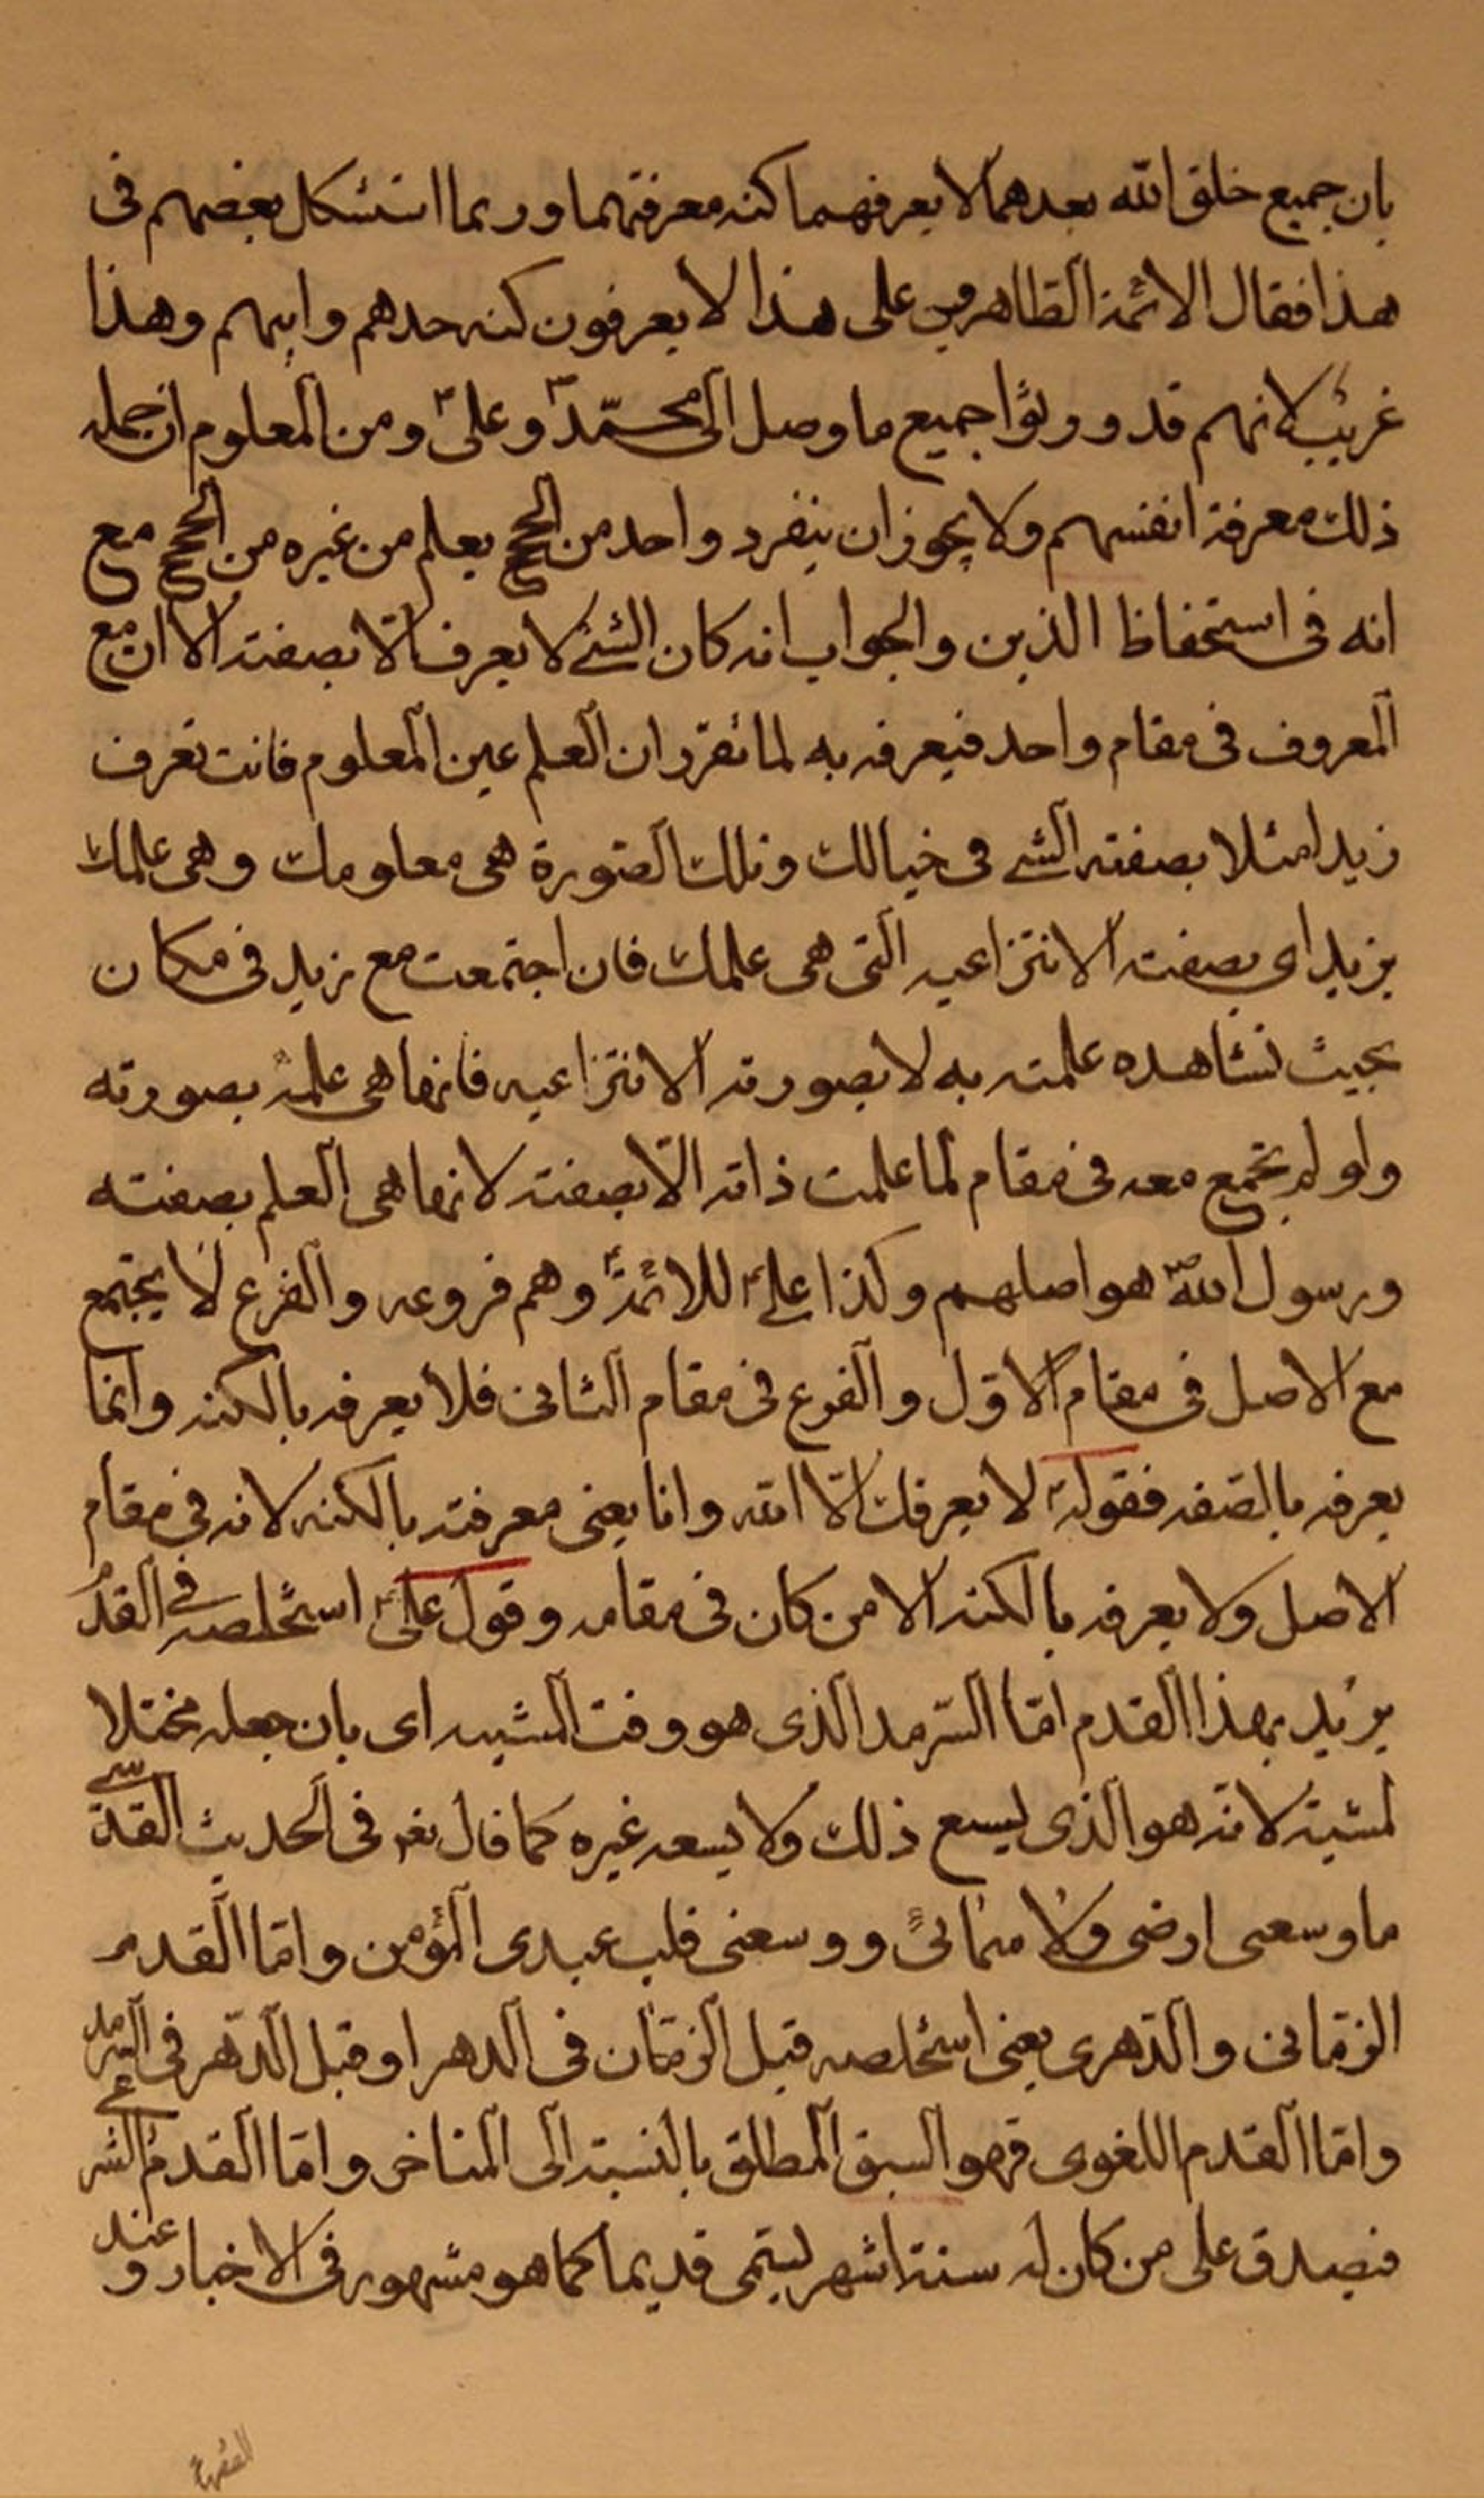 بان جميع خلق الله بعدهما لا يعرفهما كنه معرفتهما وربما استشكل بعضهم فى
هذا فقال الائمة الطاهرين على هذا لا يعرفون كنه جدهم وابيهم وهذا
غريب لانهم قد ورثوا جميع ما وصل الى محمّد ص وعلىّ ع ومن المعلوم ان جمله
ذلك معرفة انفسهم ولا يجوز ان ينفرد واحد من الحجج بعلم من غيره من الحجج مع
انه فى استحفاظ الدين والجواب انه كان الشئ لا يعرف الّا بصفته الا ان مع
المعروف فى مقام واحد فيعرفه به لما تقرّر ان العلم عين المعلوم فانت تعرف
زيدا مثلا بصفته الشى فى خيالك وتلك الصّورة هى معلومك وهى علمك
بزيد اى بصفته الانتزاعيه التى هى علمك فان اجتمعت مع زيد فى مكان
بحيث تشاهده علمته به لا بصورته الانتزاعيه فانها هى علمه بصورته
ولو لم تجتمع معه فى مقام لما علمت ذاته الّا بصفته لانها هى العلم بصفته
ورسول الله ص هو اصلهم وكذا على ع للائمّة ع وهم فروعه والفرع لا يجتمع
مع الاصل فى مقام الاوّل والفرع فى مقام الثانى فلا يعرفه بالكنه وانما
يعرفه بالصّفه فقوله لا يعرفك الّا الله وانا يعنى معرفته بالكنه لانه فى مقام
الاصل ولا يعرفه بالكنه الا من كان فى مقامه وقول على ع استخلصه فى القدم
يريد بهذا القدم امّا السّرمد الذى هو وقت المشيه اى بان جعله محتلا
لمشيته لانّه هو الذى يسع ذلك ولا يسعه غيره كما قال تعم فى الحديث القدّسى
ما وسعى ارضى ولا سمائى ووسعنى قلب عبدى المؤمن وامّا القدم
الزمّانى والدّهرى يعنى استخلصه قبل الزمّان فى الدهر او قبل الدّهر فى السّرمد
وامّا القدم اللغوى فهو السبق المطلق بالنسبة الى المتاخر وامّا القدم الشرعى
فيصدق على من كان له ستة اشهر ليسمّى قديما كما هو مشهور فى الاخبار وعند
الفقهاء